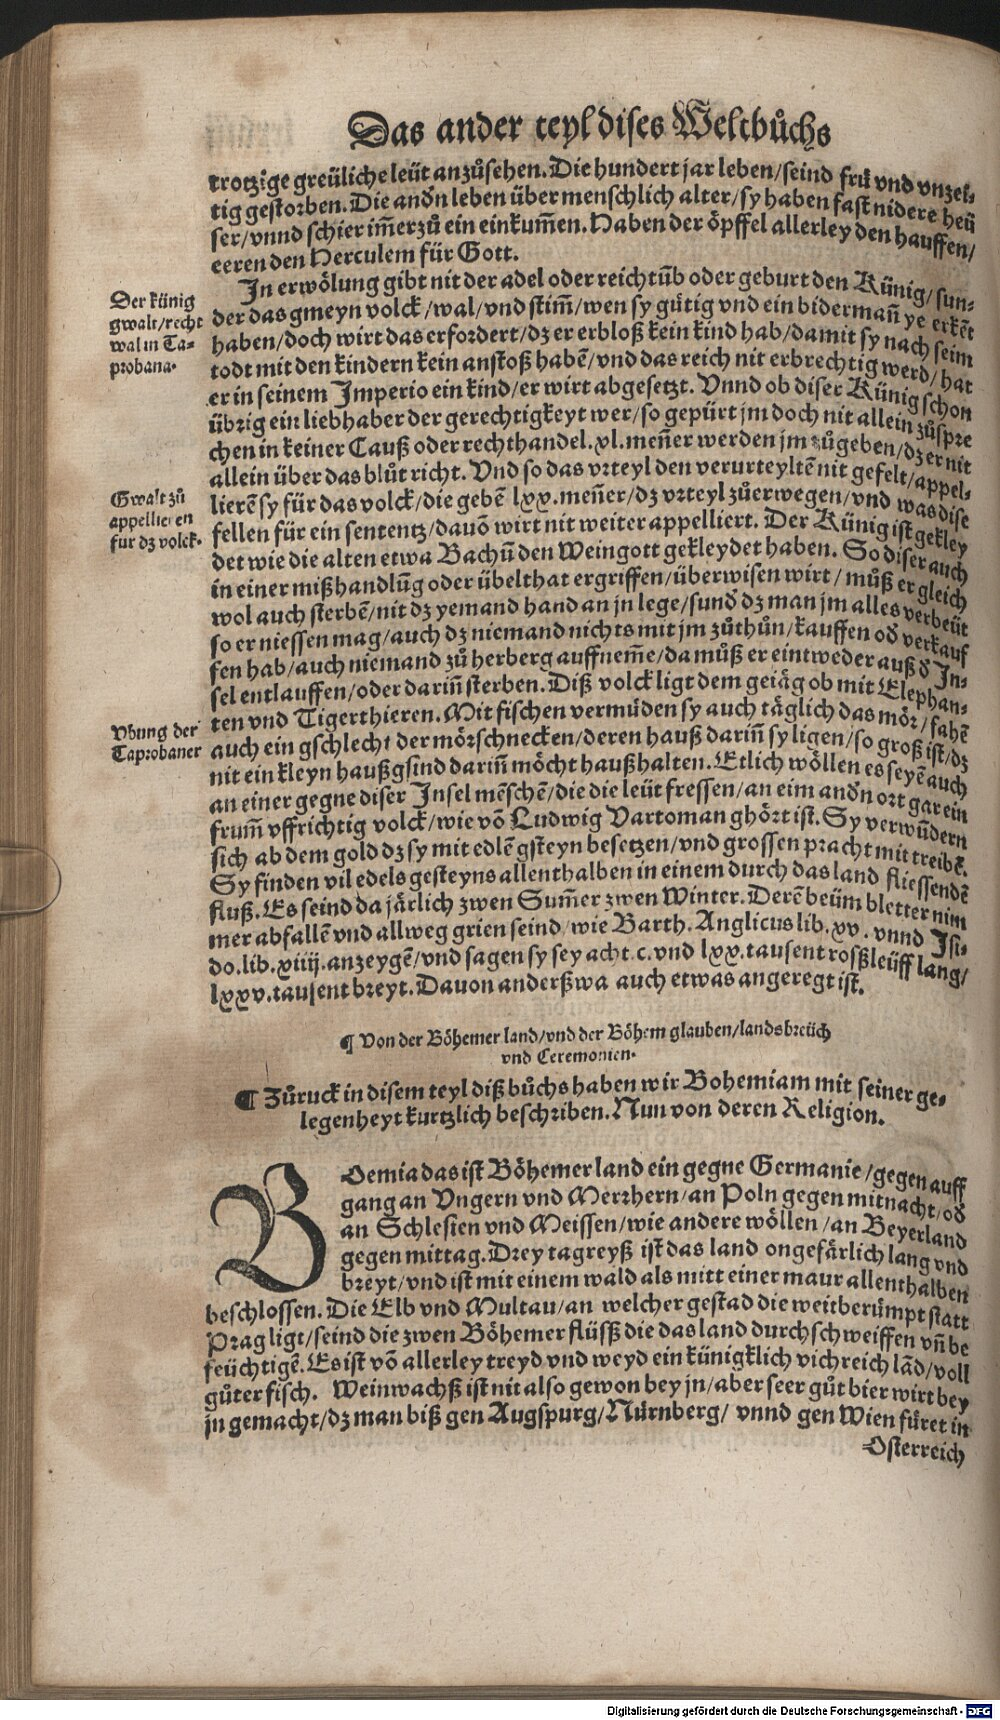 Das ander teyl dises Weltbůchs
trotzige greüliche leüt anzůsehen. Die hundert jar leben/seind frü vnd vnzei-
tig gestorben. Die andn̄ leben über menschlich alter/sy haben fast nidere heü
ser/vnnd schier im̄erzů ein einkum̄en. Haben der öpffel allerley den hauffen/
eeren den Herculem für Gott.
In erwölung gibt nit der adel oder reichtūb oder geburt den Künig/sun-
Der künig
gwalt/recht
wal in Ta-
probana.
der das gmeyn volck/wal/vnd stim̄/wen sy gütig vnd ein biderman̄ ye erkēt
haben/doch wirt das erfordert/dz er erbloß kein kind hab/damit sy nach seim
todt mit den kindern kein anstoß habē/vnd das reich nit erbrechtig werd/hat
er in seinem Imperio ein kind/er wirt abgesetzt. Vnnd ob diser Künig schon
übrig ein liebhaber der gerechtigkeyt wer/so gepürt jm doch nit allein zůspre
chen in keiner Cauß oder rechthandel. xl. men̄er werden jm zůgeben/dz er nit
allein über das blůt richt. Vnd so das vrteyl den verurteyltē nit gefelt/appel-
Gwalt zů
appellieren
fur dz volck.
lierē sy für das volck/die gebē lxx. men̄er/dz vrteyl zůerwegen/vnd was dise
fellen für ein sententz/davō wirt nit weiter appelliert. Der Künig ist gekley
det wie die alten etwa Bachū den Weingott gekleydet haben. So diser auch
in einer mißhandlūg oder übelthat ergriffen/überwisen wirt/můß er gleich
wol auch sterbē/nit dz yemand hand an jn lege/sunđ dz man jm alles verbeüt
so er niessen mag/auch dz niemand nichts mit jm zůthůn/kauffen ođ verkauf
fen hab/auch niemand zů herberg auffnem̄e/da můß er eintweder auß đ In-
sel entlauffen/oder darin̄ sterben. Diß volck ligt dem geiäg ob mit Elephan-
Vbung der
Taprobaner
ten vnd Tigerthieren. Mit fischen vermüden sy auch täglich das mör/fahē
auch ein gschlecht der mörschnecken/deren hauß darin̄ sy ligen/so groß ist/dz
nit ein kleyn haußgsind darin̄ möcht haußhalten. Etlich wöllen es seyē auch
an einer gegne diser Insel mēschē/die die leüt fressen/an eim andn̄ ort gar ein
frum̄ vffrichtig volck/wie vō Ludwig Vartoman ghört ist. Sy verwūdern
sich ab dem gold dz sy mit edlē gsteyn besetzen/vnd grossen pracht mit treibē.
Sy finden vil edels gesteyns allenthalben in einem durch das land fliessendē
fluß. Es seind da järlich zwen Sum̄er zwen Winter. Derē beüm bletter nim
mer abfallē vnd allweg grien seind/wie Barth. Anglicus lib. xv. vnnd Isi-
do. lib. xiiij. anzeygē/vnd sagen sy sey acht. c. vnd lxx. tausent roßßleüff lang/
lxxv. tausent breyt. Davon anderßwa auch etwas angeregt ist.
¶ Von der Böhemer land/vnd der Böhem glauben/landsbreüch
vnd Ceremonien.
¶ Zůruck in disem teyl diß bůchs haben wir Bohemiam mit seiner ge-
legenheyt kurtzlich beschriben. Nun von deren Religion.
BOemia das ist Böhemer land ein gegne Germanie/gegen auff
gang an Vngern vnd Merrhern/an Poln gegen mitnacht/ođ
an Schlesien vnd Meissen/wie andere wöllen/an Beyerland
gegen mittag. Drey tagreyß ist das land ongefärlich lang vnd
breyt/vnd ist mit einem wald als mitt einer maur allenthalben
beschlossen. Die Elb vnd Multau/an welcher gestad die weitberümpt statt
Prag ligt/seind die zwen Böhemer flüsß die das land durchschweiffen vn̄ be
feüchtigē. Es ist vō allerley treyd vnd weyd ein künigklich vichreich lād/voll
gůter fisch. Weinwachß ist nit also gewon bey jn/aber seer gůt bier wirt bey
jn gemacht/dz man biß gen Augspurg/Nürnberg/ vnnd gen Wien füret in
Osterreich
Digitalisierung gefördert durch die Deutsche Forschungsgemeinschaft - DFG